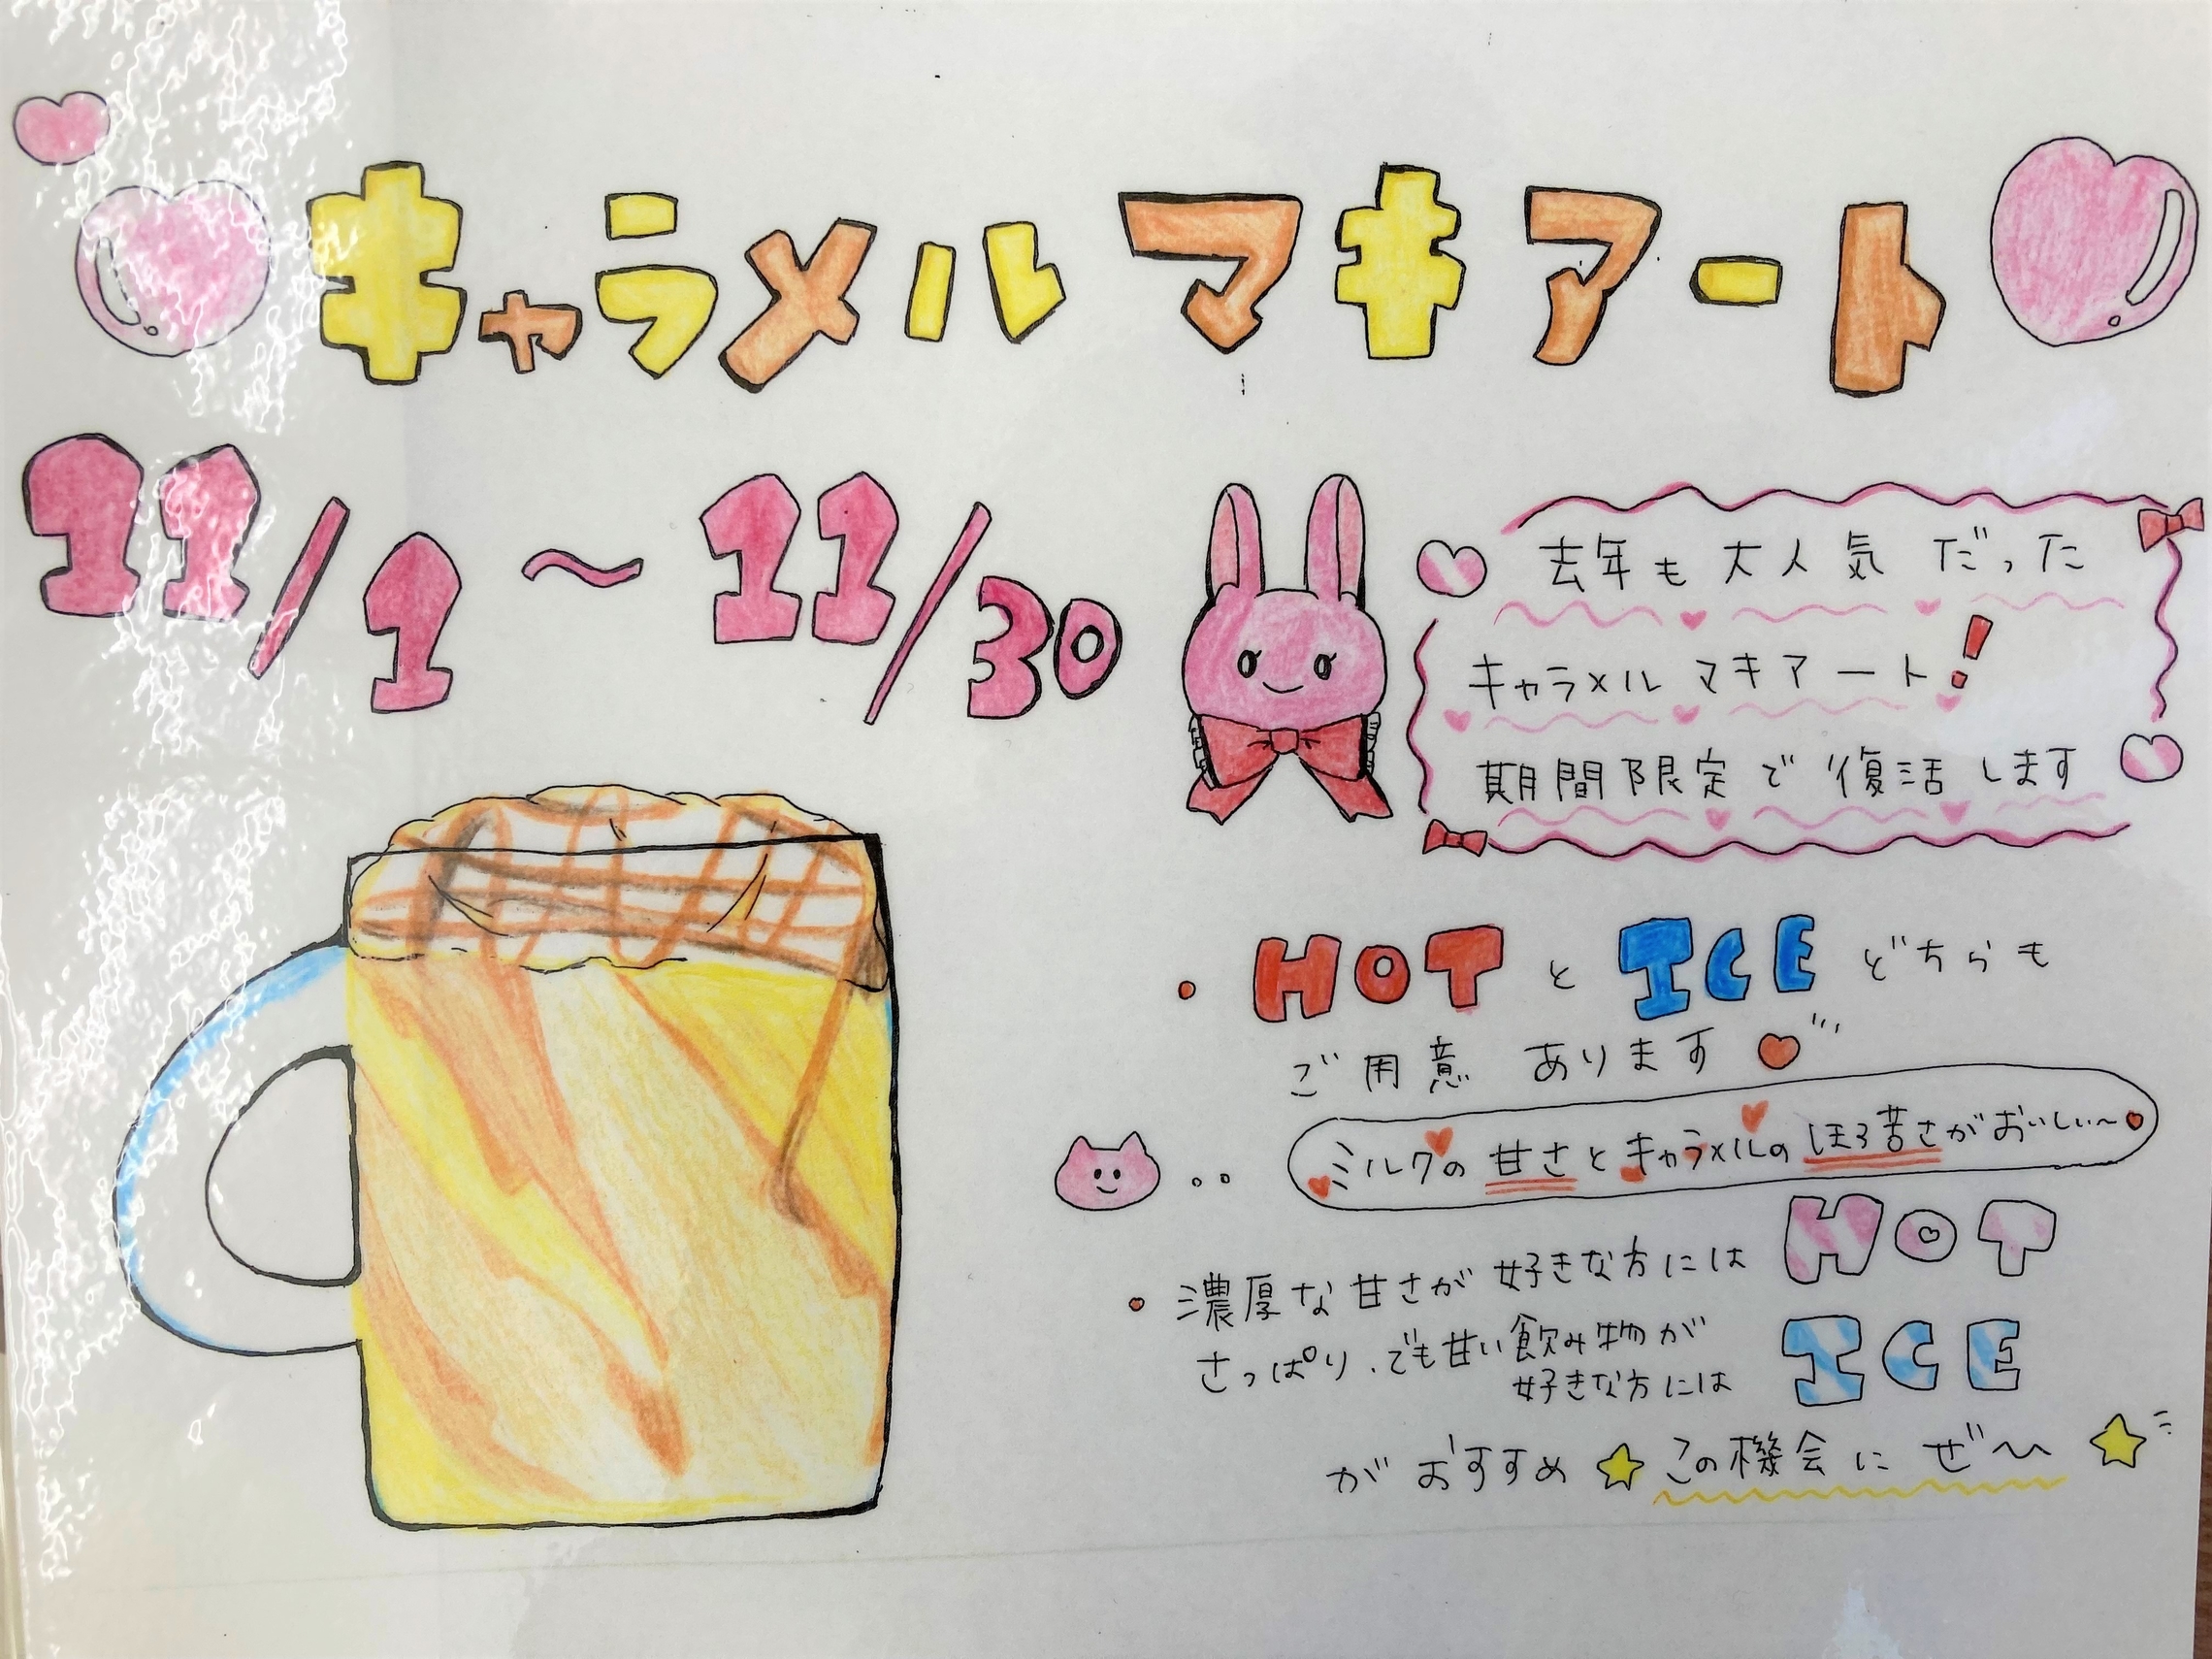 キャラメルマキアート
11/1〜11/30
去年も大人気だった
キャラメルマキアート!
期間限定で復活します
・HOTとICEどちらも
ご用意あります
ミルクの甘さとキャラメルのほろ苦さがおいしい〜
・濃厚な甘さが好きな方にはHOT
さっぱり、でも甘い飲み物が
好きな方には ICE
がおすすめ☆この機会にぜひ☆